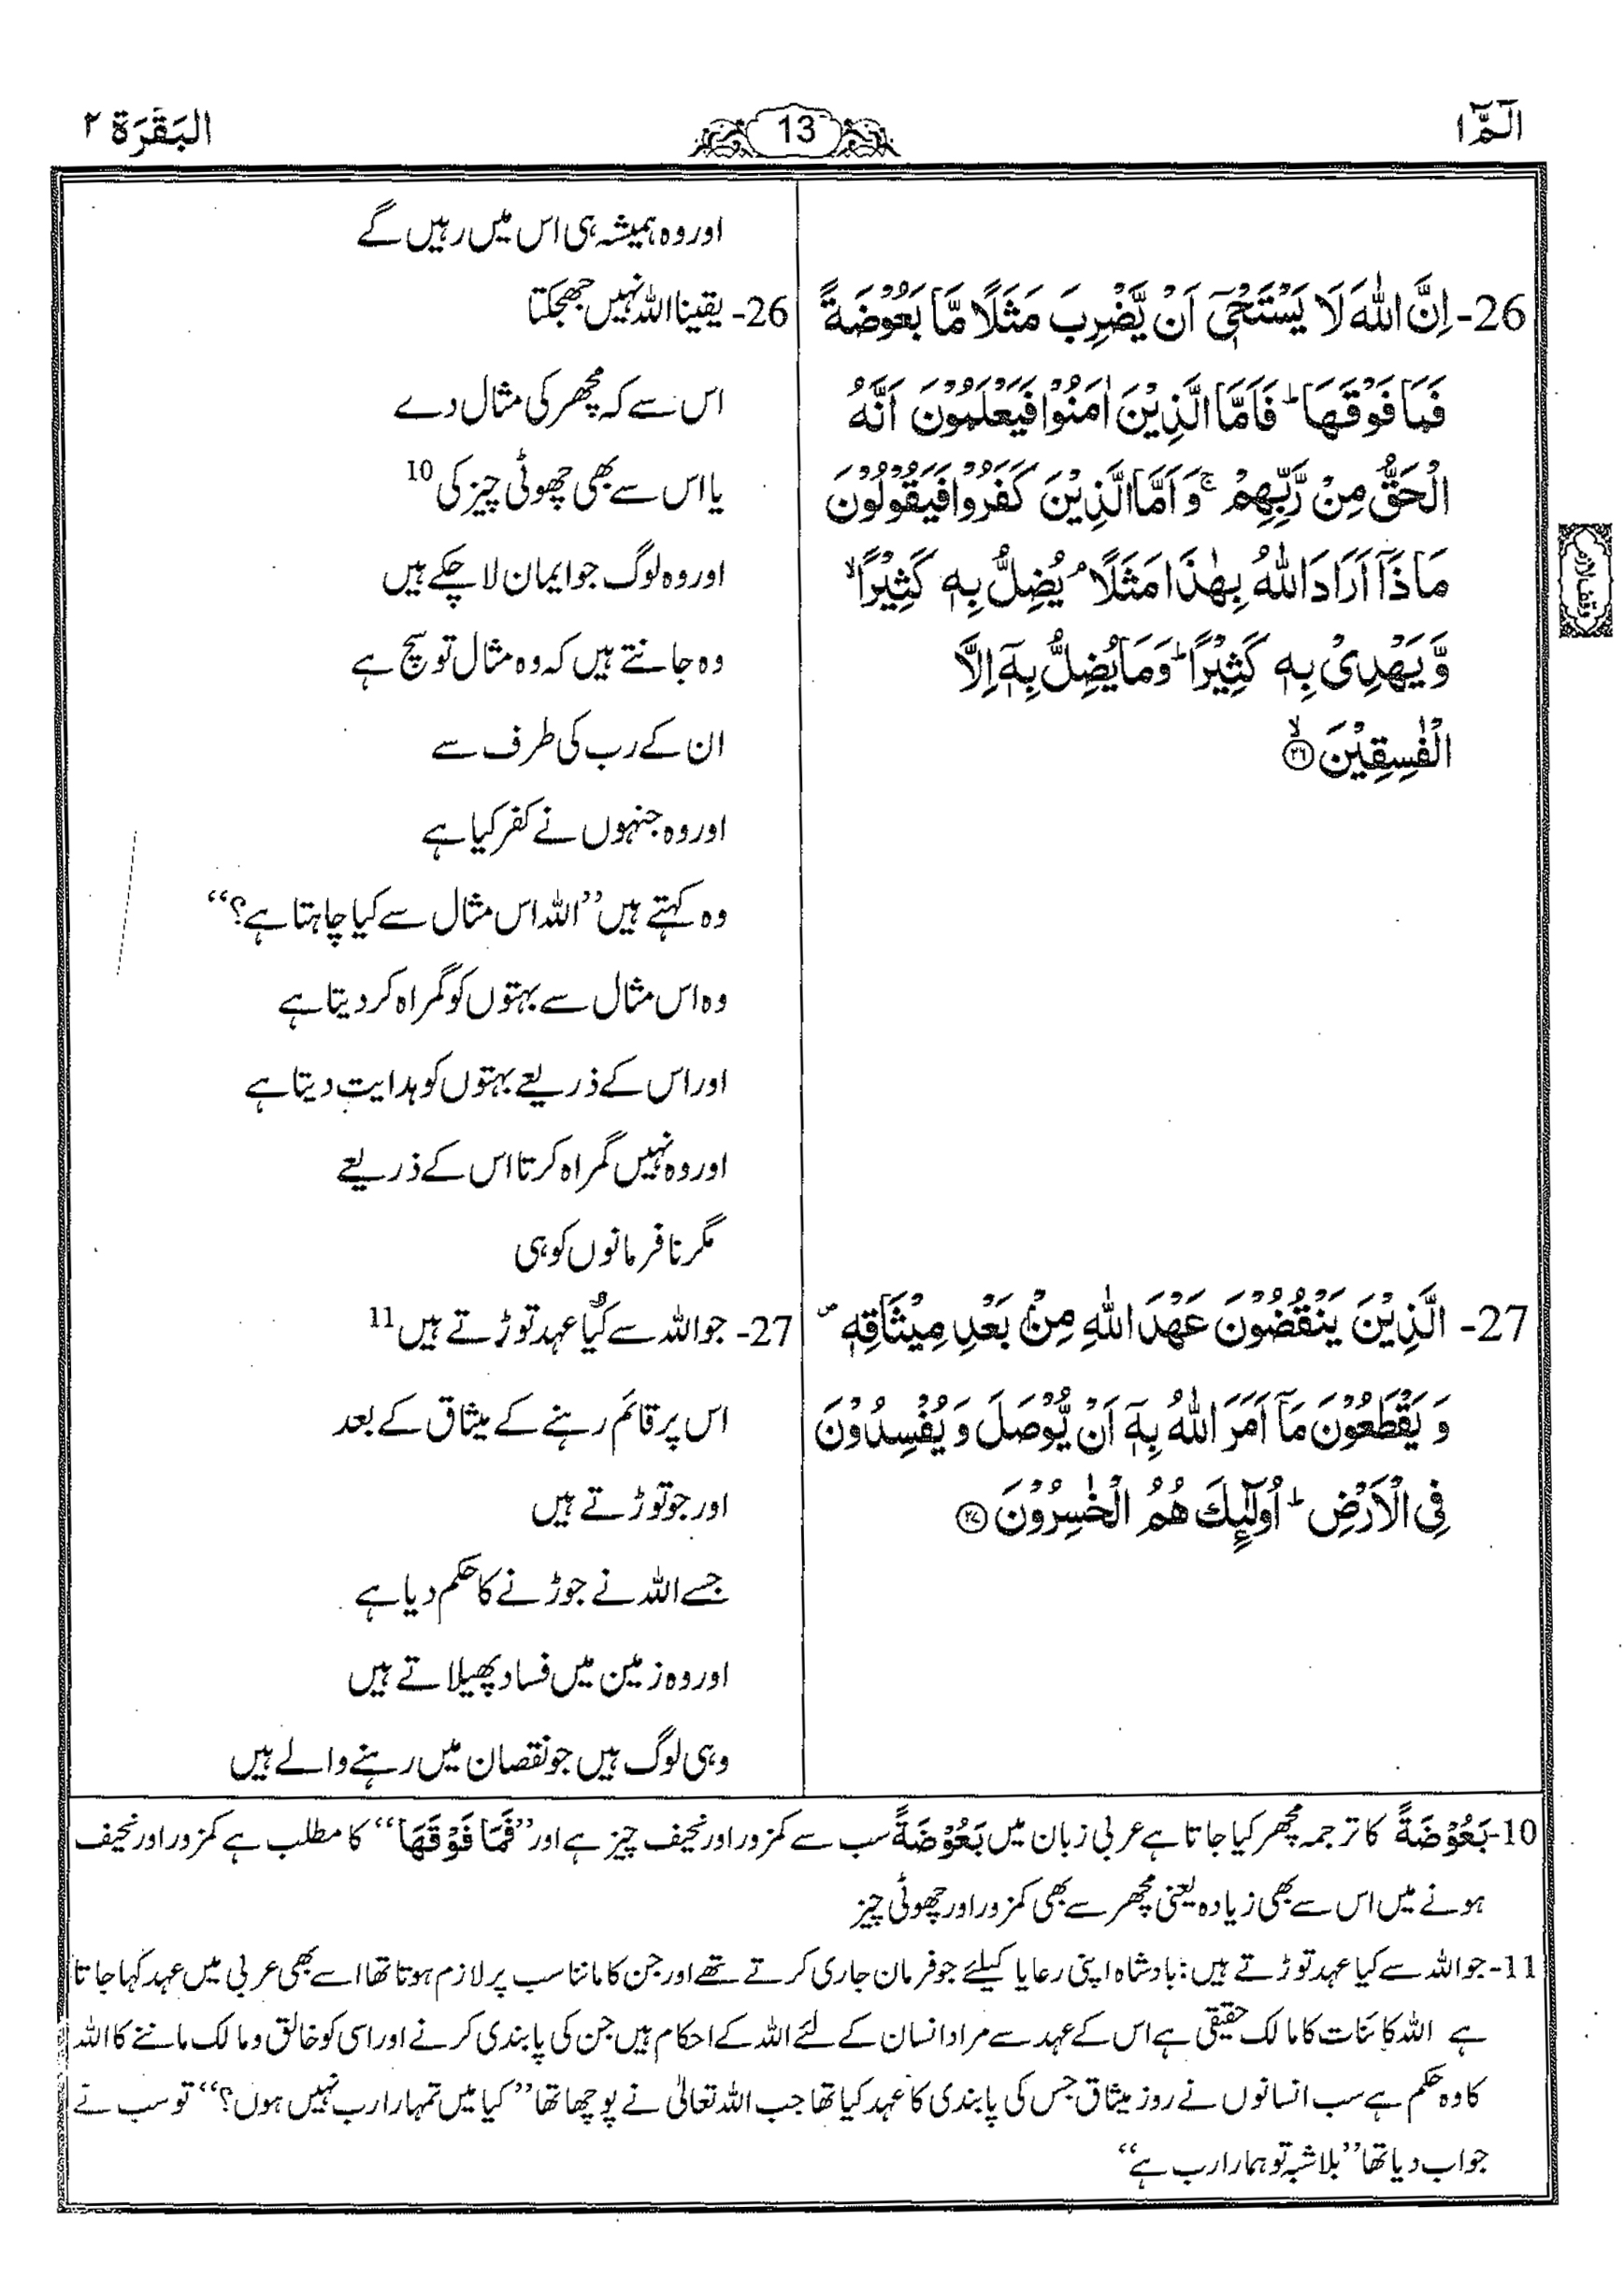 الٓمّٓ ۱
13
البَقَرَة ۲
اور وہ ہمیشہ ہی اس میں رہیں گے
26- اِنَّ اللّٰهَ لَا یَسْتَحْیٖۤ اَنْ یَّضْرِبَ مَثَلًا مَّا بَعُوْضَةً
فَمَا فَوْقَهَا ؕ فَاَمَّا الَّذِیْنَ اٰمَنُوْا فَیَعْلَمُوْنَ اَنَّهُ
الْحَقُّ مِنْ رَّبِّهِمْ ۚ وَ اَمَّا الَّذِیْنَ كَفَرُوْا فَیَقُوْلُوْنَ
مَا ذَاۤ اَرَادَ اللّٰهُ بِهٰذَا مَثَلًا ۘ یُضِلُّ بِهٖ كَثِیْرًا ۙ
وَّ یَهْدِیْ بِهٖ كَثِیْرًا ؕ وَ مَا یُضِلُّ بِهٖۤ اِلَّا
الْفٰسِقِیْنَ ۙ۲۶
وقف لازم
26- یقینا اللہ نہیں جھجکتا
اس سے کہ مچھر کی مثال دے
یا اس سے بھی چھوٹی چیز کی 10
اور وہ لوگ جو ایمان لا چکے ہیں
وہ جانتے ہیں کہ وہ مثال تو سچ ہے
ان کے رب کی طرف سے
اور وہ جنہوں نے کفر کیا ہے
وہ کہتے ہیں ”اللہ اس مثال سے کیا چاہتا ہے؟“
وہ اس مثال سے بہتوں کو گمراہ کر دیتا ہے
اور اس کے ذریعے بہتوں کو ہدایت دیتا ہے
اور وہ نہیں گمراہ کرتا اس کے ذریعے
مگر نافرمانوں کو ہی
27- الَّذِیْنَ یَنْقُضُوْنَ عَهْدَ اللّٰهِ مِنْۢ بَعْدِ مِیْثَاقِهٖ ۪
وَ یَقْطَعُوْنَ مَاۤ اَمَرَ اللّٰهُ بِهٖۤ اَنْ یُّوْصَلَ وَ یُفْسِدُوْنَ
فِی الْاَرْضِ ؕ اُولٰٓىِٕكَ هُمُ الْخٰسِرُوْنَ ۲۷
27- جو اللہ سے کیا عہد توڑتے ہیں 11
اس پر قائم رہنے کے میثاق کے بعد
اور جو توڑتے ہیں
جسے اللہ نے جوڑنے کا حکم دیا ہے
اور وہ زمین میں فساد پھیلاتے ہیں
وہی لوگ ہیں جو نقصان میں رہنے والے ہیں
10- بَعُوْضَةً کا ترجمہ مچھر کیا جاتا ہے عربی زبان میں بَعُوْضَةً سب سے کمزور اور نحیف چیز ہے اور ”فَمَا فَوْقَهَا“ کا مطلب ہے کمزور اور نحیف
ہونے میں اس سے بھی زیادہ یعنی مچھر سے بھی کمزور اور چھوٹی چیز
11- جو اللہ سے کیا عہد توڑتے ہیں: بادشاہ اپنی رعایا کیلئے جو فرمان جاری کرتے تھے اور جن کا ماننا سب پر لازم ہوتا تھا اسے بھی عربی میں عہد کہا جاتا
ہے اللہ کائنات کا مالک حقیقی ہے اس کے عہد سے مراد انسان کے لئے اللہ کے احکام ہیں جن کی پابندی کرنے اور اسی کو خالق و مالک ماننے کا اللہ
کا وہ حکم ہے سب انسانوں نے روز میثاق جس کی پابندی کا عہد کیا تھا جب اللہ تعالیٰ نے پوچھا تھا ”کیا میں تمہارا رب نہیں ہوں؟“ تو سب نے
جواب دیا تھا ”بلاشبہ تو ہمارا رب ہے“